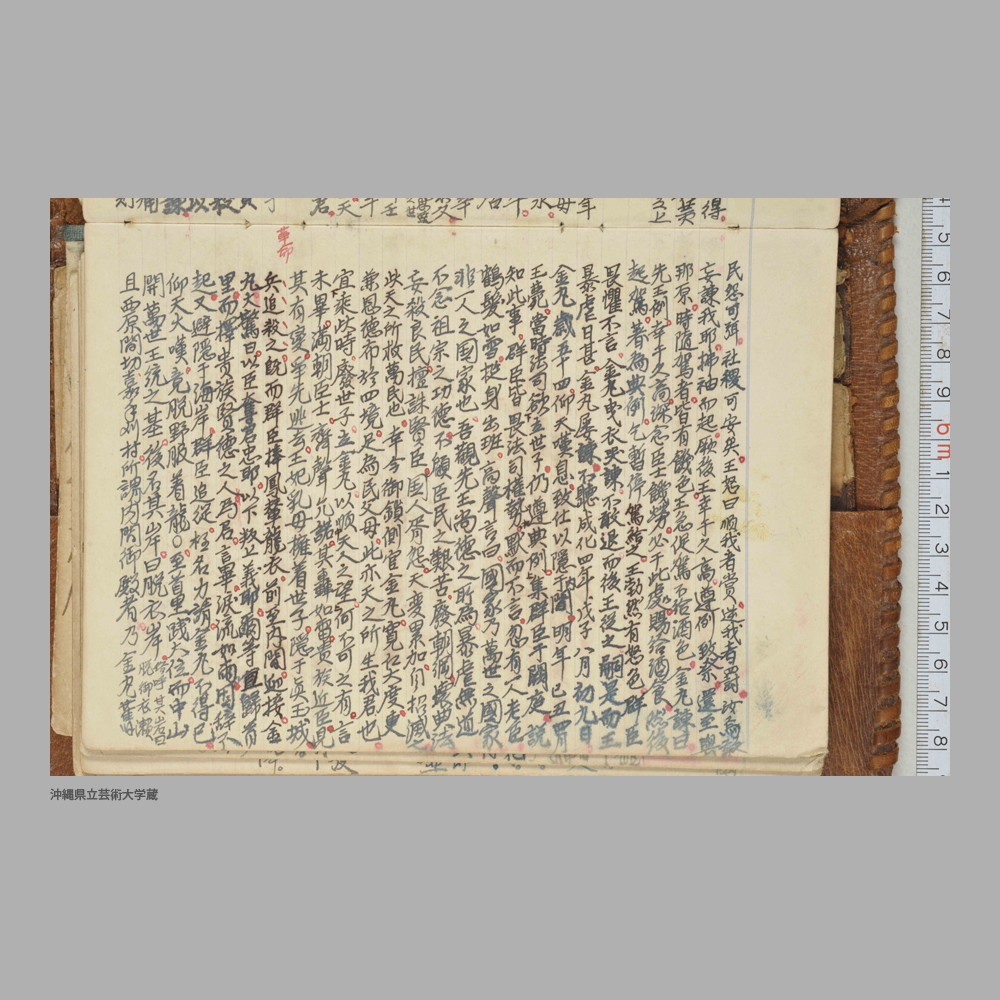 民怨可弭社稷可安矣王怒曰順我者賞逆我者罰汝焉敢
妄諫我耶拂袖而起厥後王幸于久高遵例致祭還至與
那原時隨駕者皆有饑色王急促駕不給酒色金丸諫曰
先王例幸于久高深念臣士饑勞必于此處賜給酒食然後
起駕著為典例乞暫停駕給之王勃然有怒色群臣
畏懼不言金丸曳衣央諫不敢退而後王從之嗣是而王
暴虐日甚金丸屡諫不聽成化四年戊子八月初九日
金丸歳五十四仰天嘆息致仕以隱内間明年己丑四月
王薨當時法司欲立世子仍遵典例集群臣于闕庭説
知此事群臣皆畏法司權勢默而不言忽有一人老臣
鶴髪如雪挺身出班高聲言曰國家乃萬世之國家
非一人之國家也吾觀先王尚德之所為暴虐無道
不念祖宗之功德不顧臣民之艱苦廢朝綱壞典法
妄殺良民擅誅賢臣國人胥怨天変累加自招滅亡
此天之所救萬民也幸今御鎖側官金丸寛仁大度更
兼恩德布於四境足為民父母此亦天之所生我君也
宜乘此時廢世子立金丸以順天人之望何不可之有言
未畢満朝臣士齊聲允諾其轟如雷貴族近臣見
其有変争先逃去王妃乳母擁着世子隱于真玉城
革命
兵追殺之既而群臣捧鳳輦龍衣前至内間迎接金
丸大驚曰以臣奪君忠耶以下叛上義耶爾等且歸首
里而擇貴族賢德之人為君言畢涙流如雨固辭不
起又避隱于海岸群臣追従極力請金丸不得已
仰天大嘆竟脱野服着龍〇至首里践大位而中山
開萬世王統之基後名其岸曰脱衣岸俗呼其岩曰脱御衣瀬
且西原間切嘉手苅村所謂内間御殿者乃金丸舊
沖縄県立芸術大学蔵